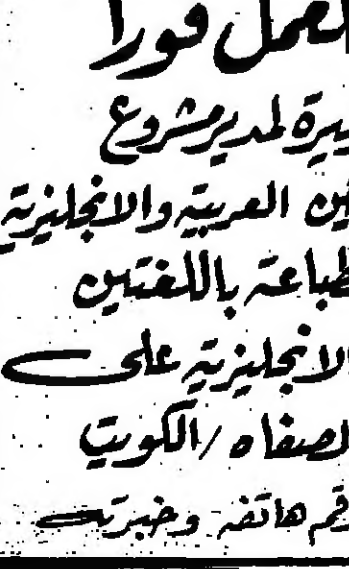 لعمل فوراً
يرة لمدير مشروع
ين العربية والانجليزية
طباعة باللغتين
الانجليزية على
لصفاه / الكويت
رقم هاتفه وخبرته